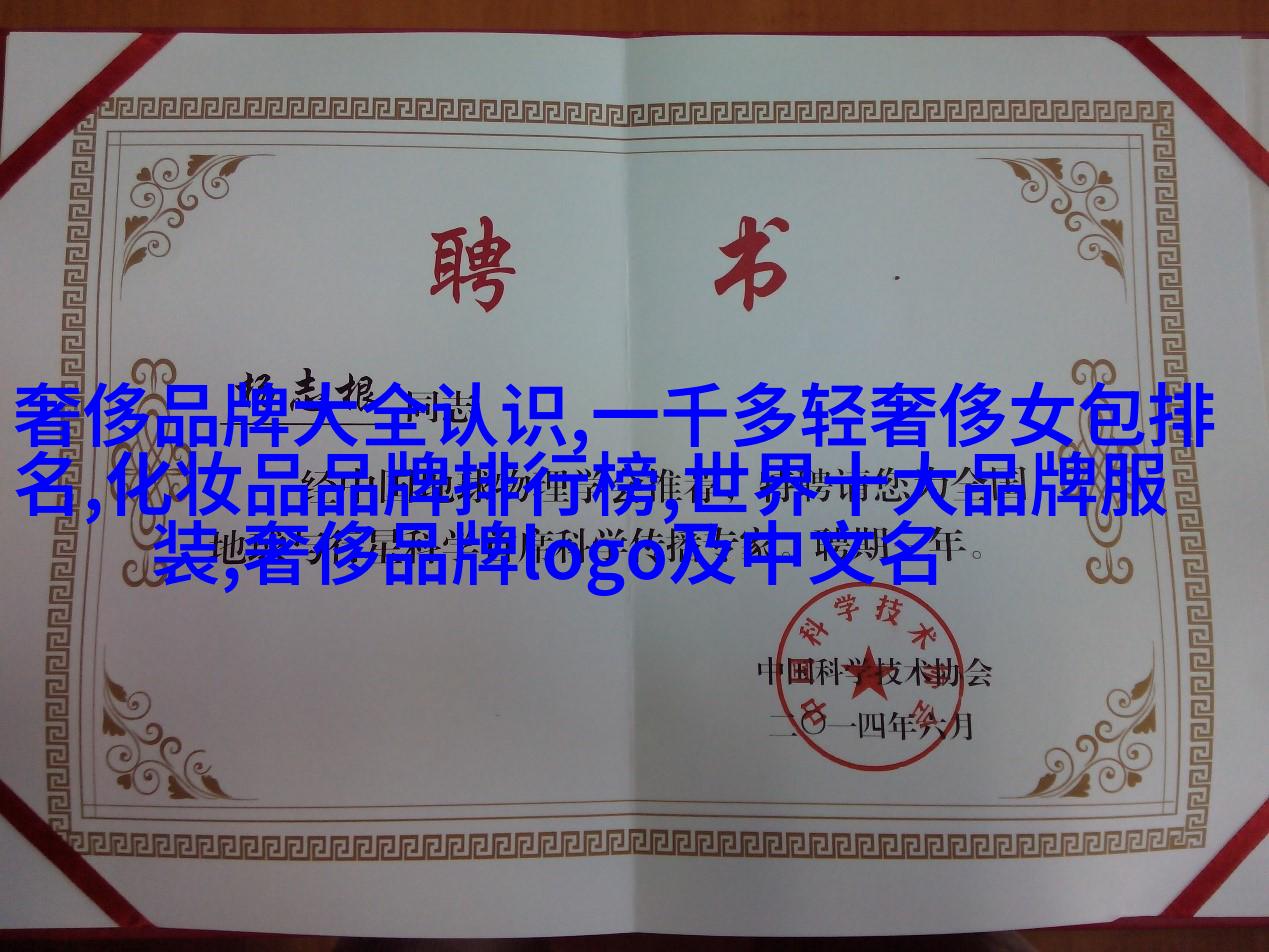 聘 书
杨志根 同志
奢侈品牌大全认识,一千多轻奢侈女包排
名,化妆品品牌排行榜,世界十大品牌服
装,奢侈品牌logo及中文名
经中国地球物理学会推荐，特聘请您为全国
地球与行星科学首席科学传播专家。聘期 年。
中国科学技术协会
中国科学技术协会
二〇一四年六月